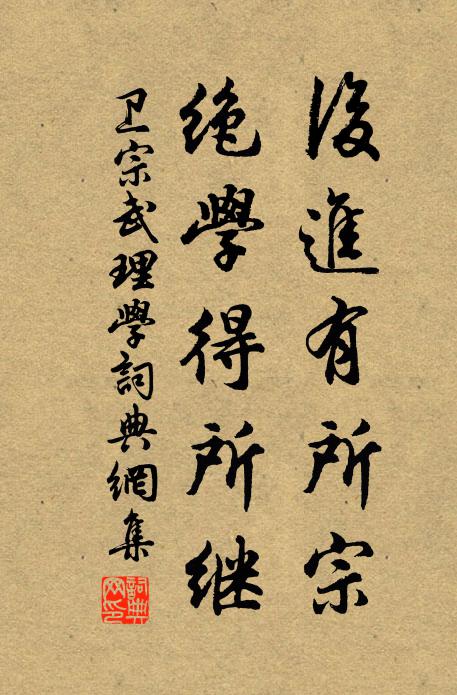 後進有所宗
绝學得所继
卫宗武理學詞典網集
詞典網印